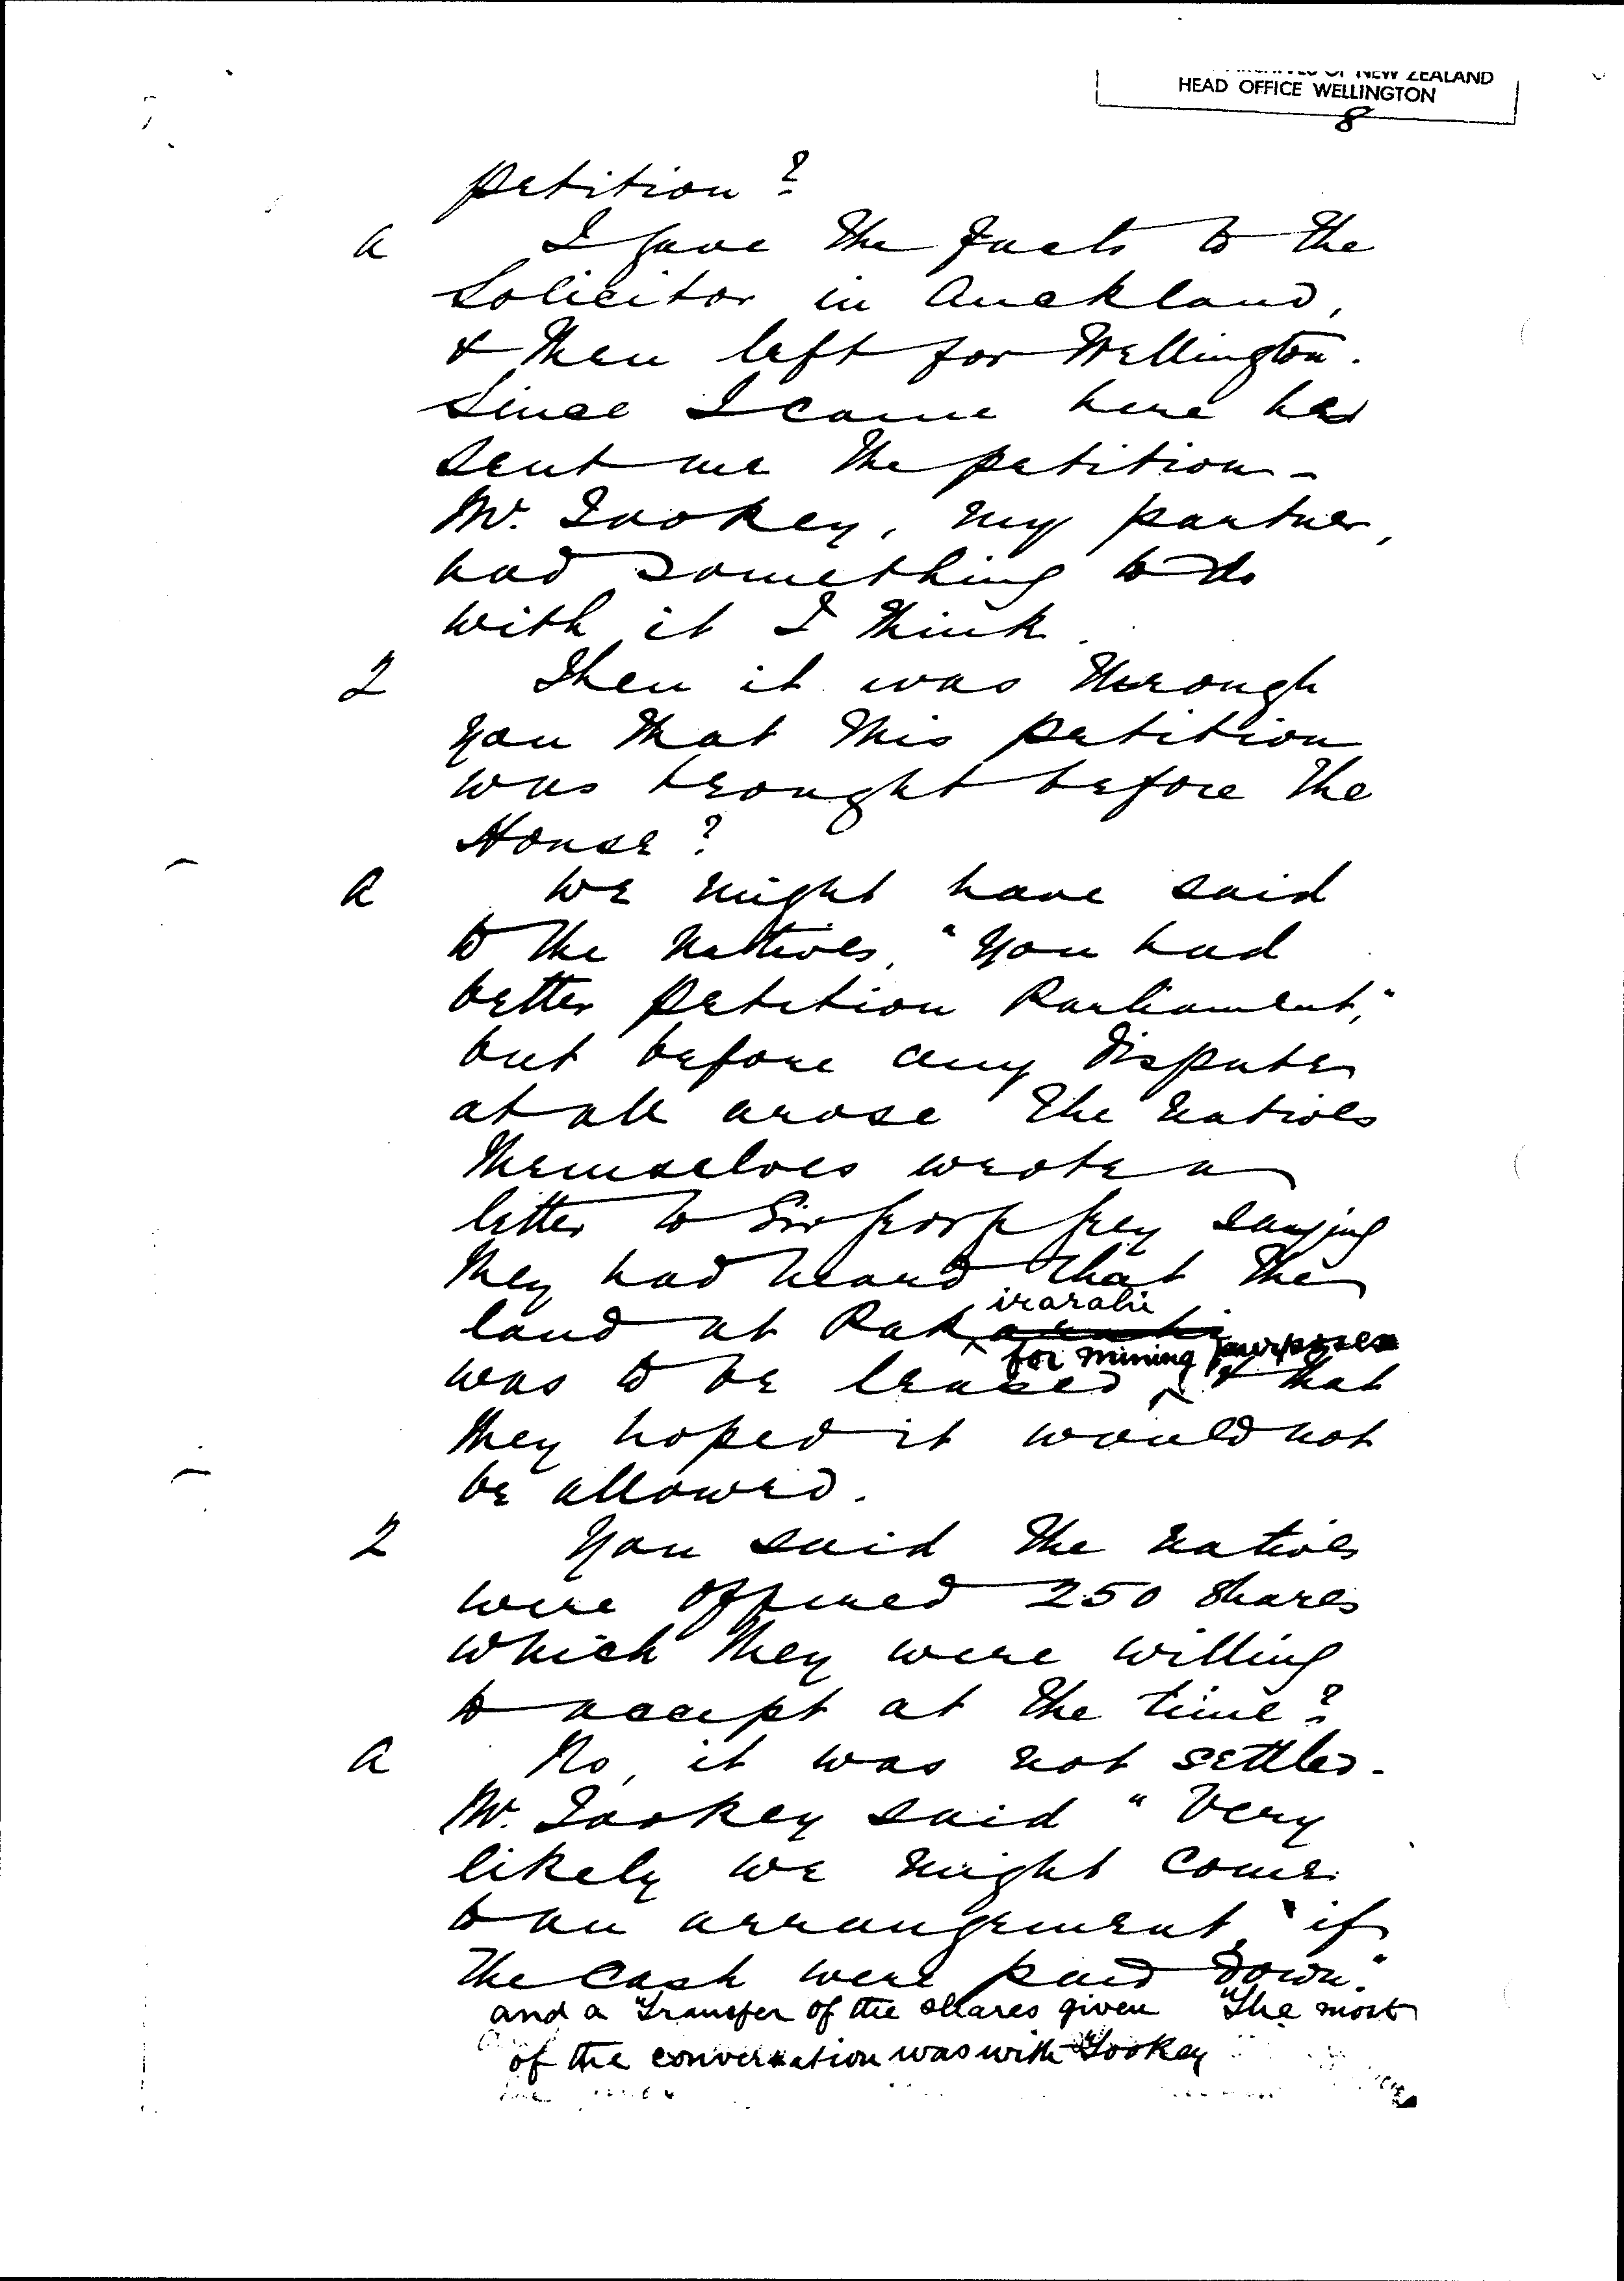 ARCHIVES OF NEW ZEALAND
HEAD OFFICE WELLINGTON
8
petition?
A I gave the facts to the
Solicitor in Auckland,
& then left for Wellington.
Since I came here he
sent me the petition –
Mr. Tookey, my partner,
had something to do
with it I think.
Q Then it was through
you that this petition
was brought before the
House?
A We might have said
to the Natives, "You had
better petition Parliament,"
but before any dispute
at all arose the natives
themselves wrote a
letter to Sir George Grey saying
they had heard that the
irarahi
land at Rak
for mining purposes
was to be leased & that
they hoped it would not
be allowed.
Q You said the natives
were offered 250 shares
which they were willing
to accept at the time?
A No, it was not settled.
Mr. Tookey said "Very
likely we might come
to an arrangement, if
the cash were paid down."
and a transfer of the shares given The most
of the conversation was with Tookey